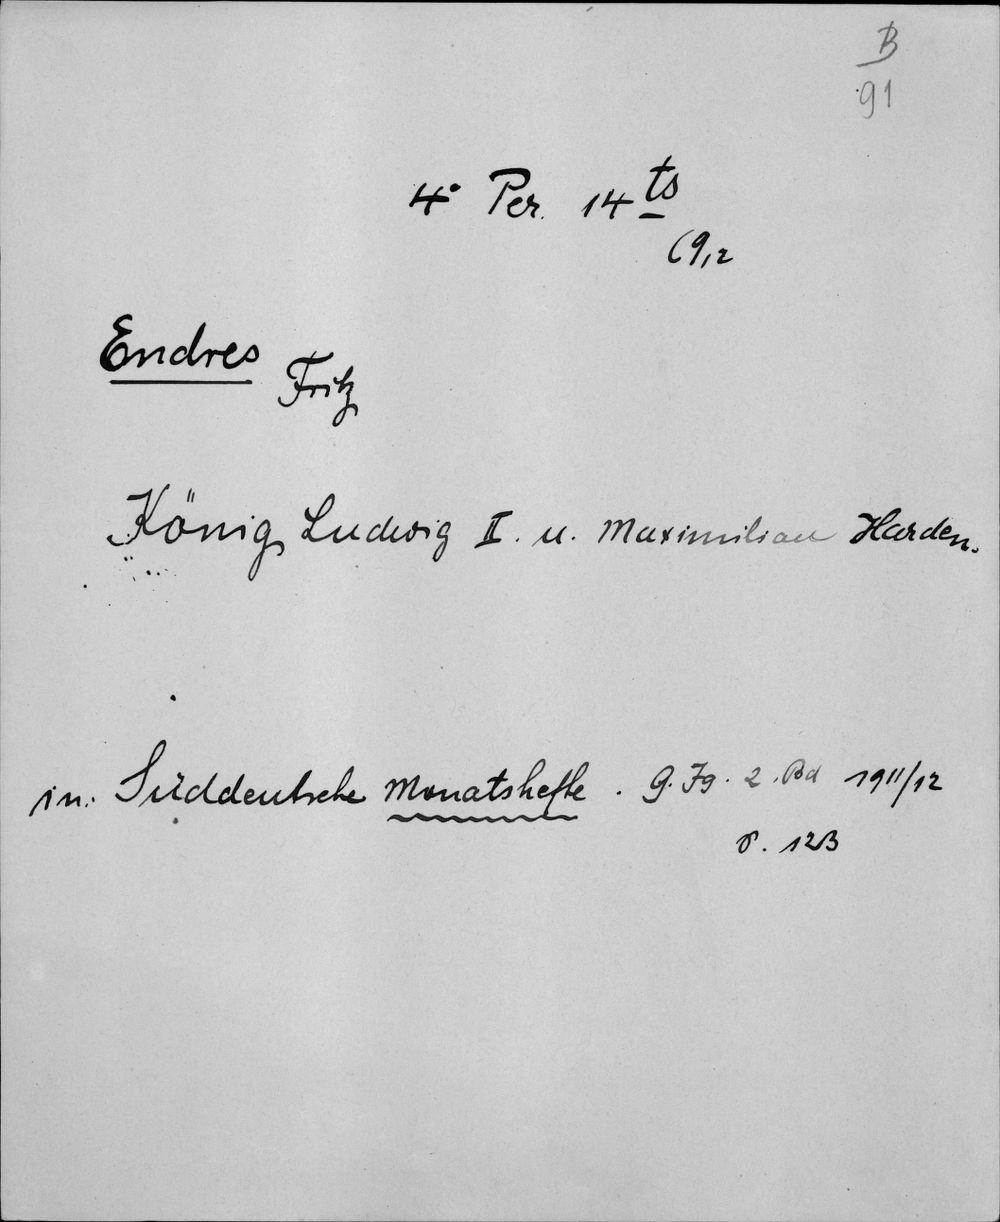 B
91
4° Per. 14 ts
(9,2
Endres Fritz
König Ludwig II. u. Maximilian Harden.
in: Süddeutsche Monatshefte. 9. Jg. 2. Bd 1911/12
S. 123